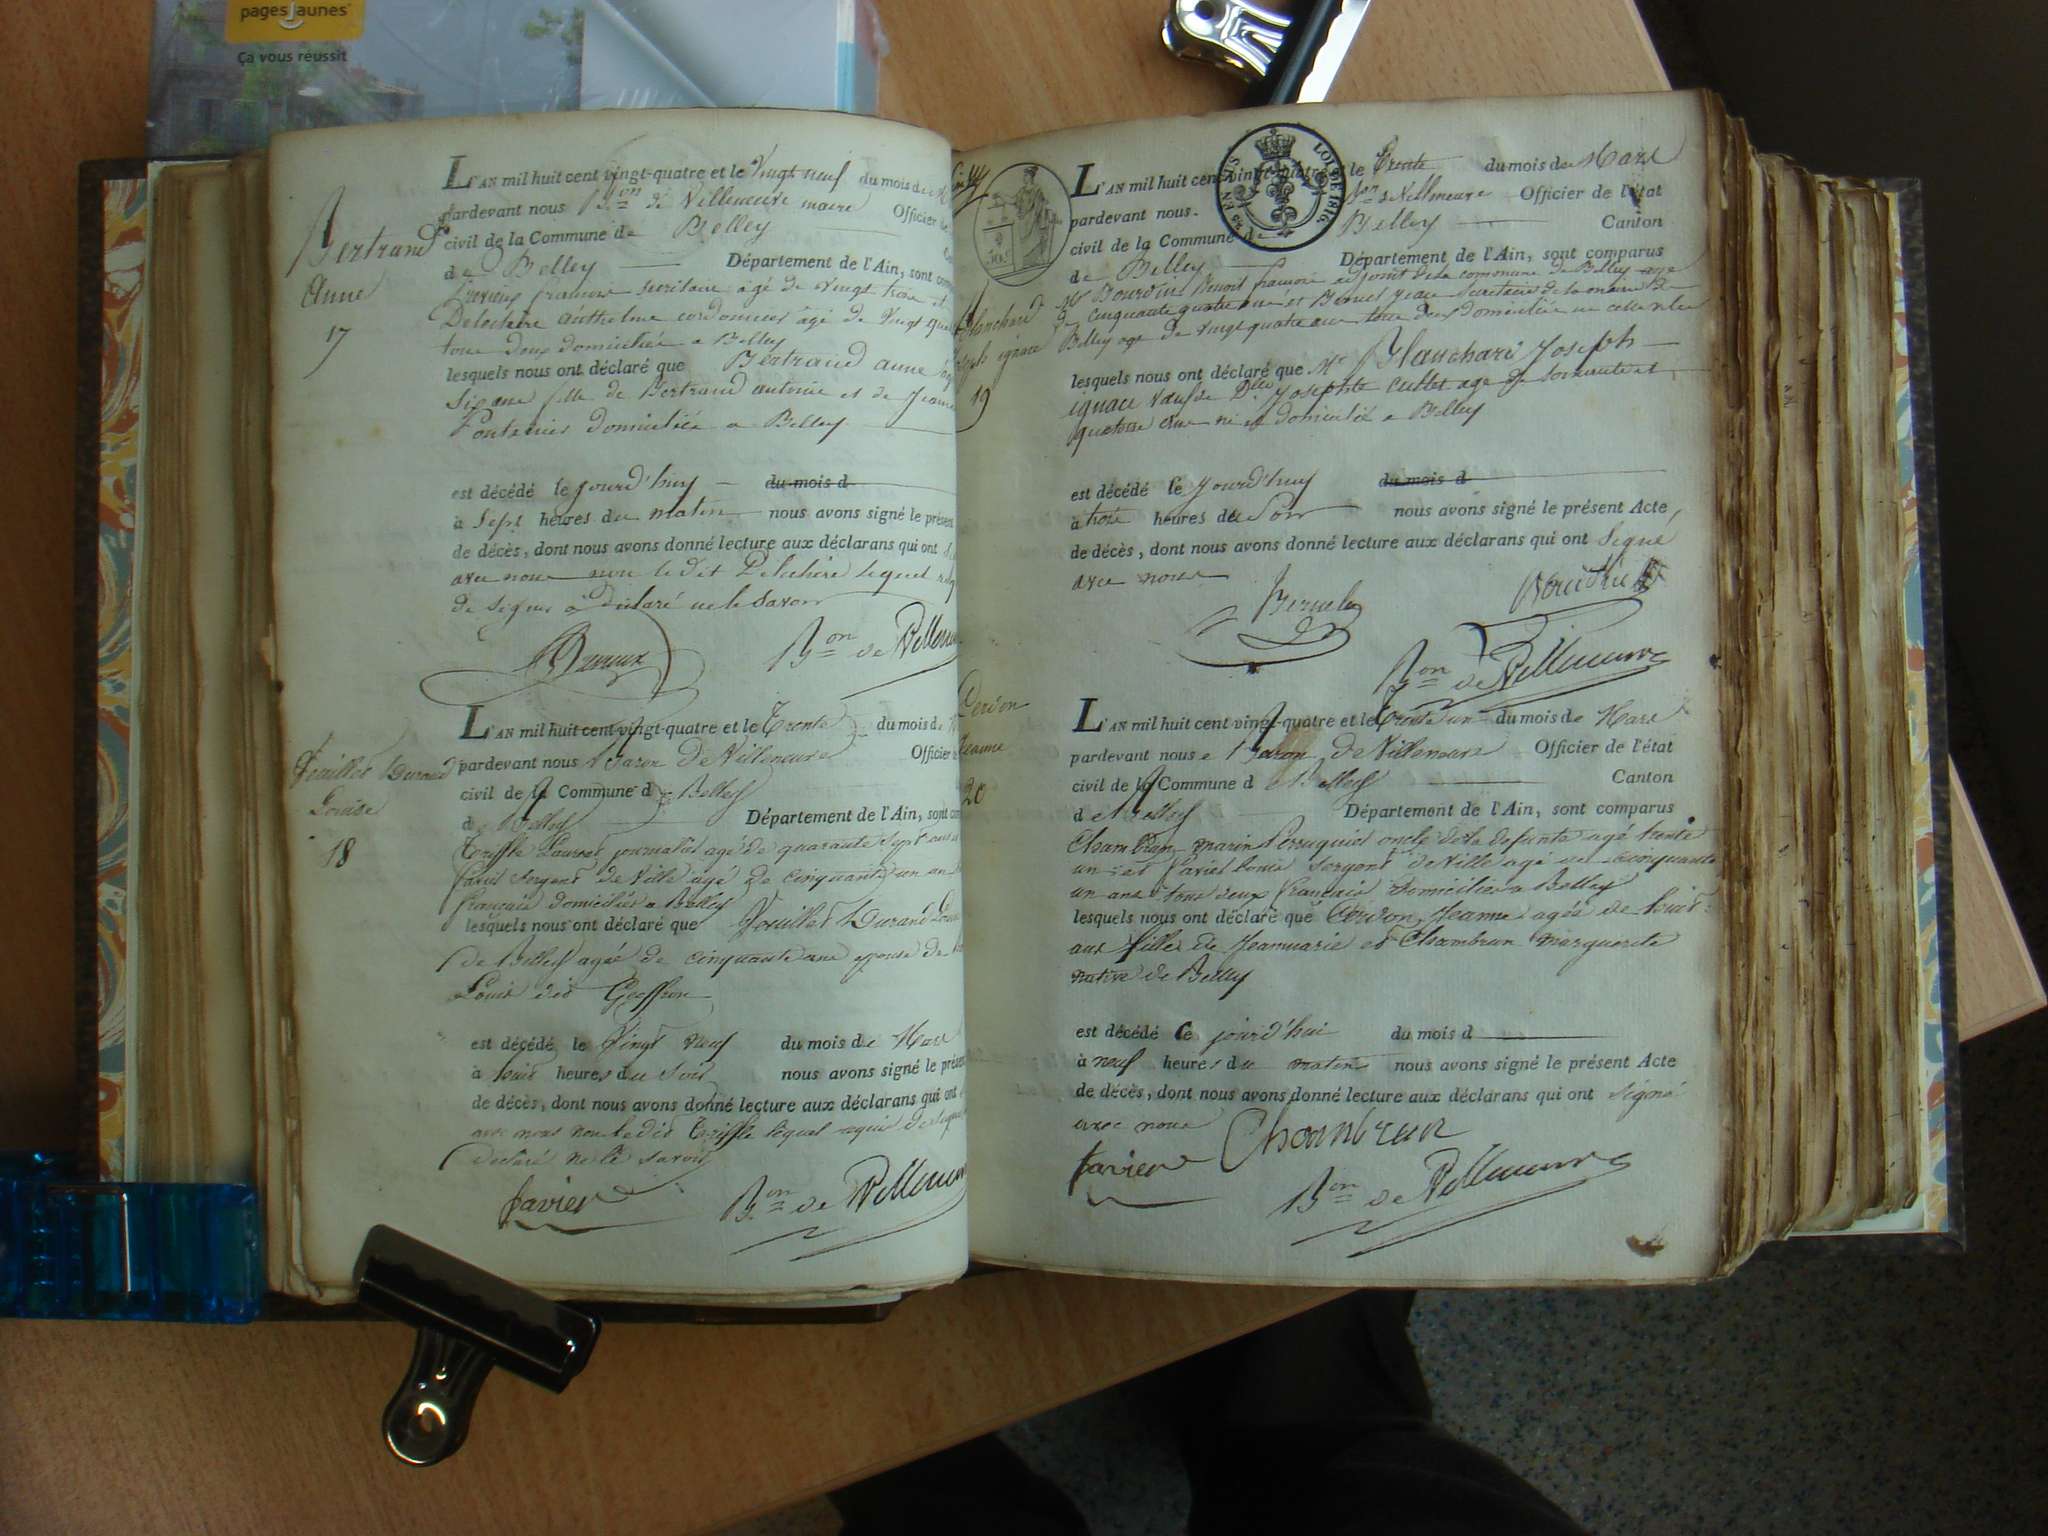 pages jaunes
Ça vous réussit
L'AN mil huit cent vingt-quatre et le Vingt neuf du mois de
pardevant nous B.on de Villeneuve maire Officier
civil de la Commune de Belley
de Belley Département de l'Ain, sont
françois secrétaire agé de vingt trois
anthelme cordonnier agé de vingt
tous deux domiciliés a Belley
lesquels nous ont déclaré que Bertrand anne
six ans fille de Bertrand antoine et de Jeanne
domiciliée a Belley
est décédé le jourd'huy du mois d
à Sept heures du matin nous avons signé le présent
de décès, dont nous avons donné lecture aux déclarans qui ont
avec nous non le dit lequel
de signer a déclaré ne le savoir
B.on de Villeneuve
Bertrand
Anne
17
L'AN mil huit cent vingt-quatre et le Trente du mois de
pardevant nous Baron de Villeneuve Officier
civil de la Commune de Belley
de Belley Département de l'Ain, sont
journalier agé de quarante sept ans
Sergent de Ville agé de cinquante un an
français domiciliés a Belley
lesquels nous ont déclaré que Durand
de Belley agée de cinquante ans epouse de
Louis dit Geoffron
est décédé le Vingt neuf du mois de Mars
à huit heures du Soir nous avons signé le présent
de décès, dont nous avons donné lecture aux déclarans qui ont
avec nous non le dit lequel requis de signer
Declaré ne le savoir
Favier B.on de Villeneuve
Durand
Louise
18
LOI DE 1816
L'AN mil huit cent vingt-quatre et le Trente du mois de Mars
pardevant nous B.on de Villeneuve Officier de l'état
civil de la Commune de Belley Canton
de Belley Département de l'Ain, sont comparus
Mr Benoit françois adjoint de la commune de Belley agé
de cinquante quatre ans et jean Secretaire de la mairie de
Belley agé de vingt quatre ans tous deux domiciliés en cette ville
lesquels nous ont déclaré que Mr Blanchard Joseph
ignace veuf de D.lle Josephte Cullet agé de soixante et
quatorze ans né et domicilié a Belley
est décédé le jourd'huy du mois d
à trois heures du Soir nous avons signé le présent Acte
de décès, dont nous avons donné lecture aux déclarans qui ont Signé
avec nous
B.on de Villeneuve
Blanchard
Joseph ignace
19
L'AN mil huit cent vingt-quatre et le Trente un du mois de Mars
pardevant nous Baron de Villeneuve Officier de l'état
civil de la Commune de Belley Canton
de Belley Département de l'Ain, sont comparus
Chambrun marin Perruquier oncle de la defunte agé trente
un et Favier Louis Sergent de Ville agé de cinquante
un ans tous deux français domiciliés a Belley
lesquels nous ont déclaré que Jeanne agée de huit
ans fille de Jeanmarie et Chambrun marguerite
native de Belley
est décédé Ce jourd'hui du mois d
à neuf heures du matin nous avons signé le présent Acte
de décès, dont nous avons donné lecture aux déclarans qui ont signé
avec nous Chambrun
Favier
B.on de Villeneuve
Jeanne
20